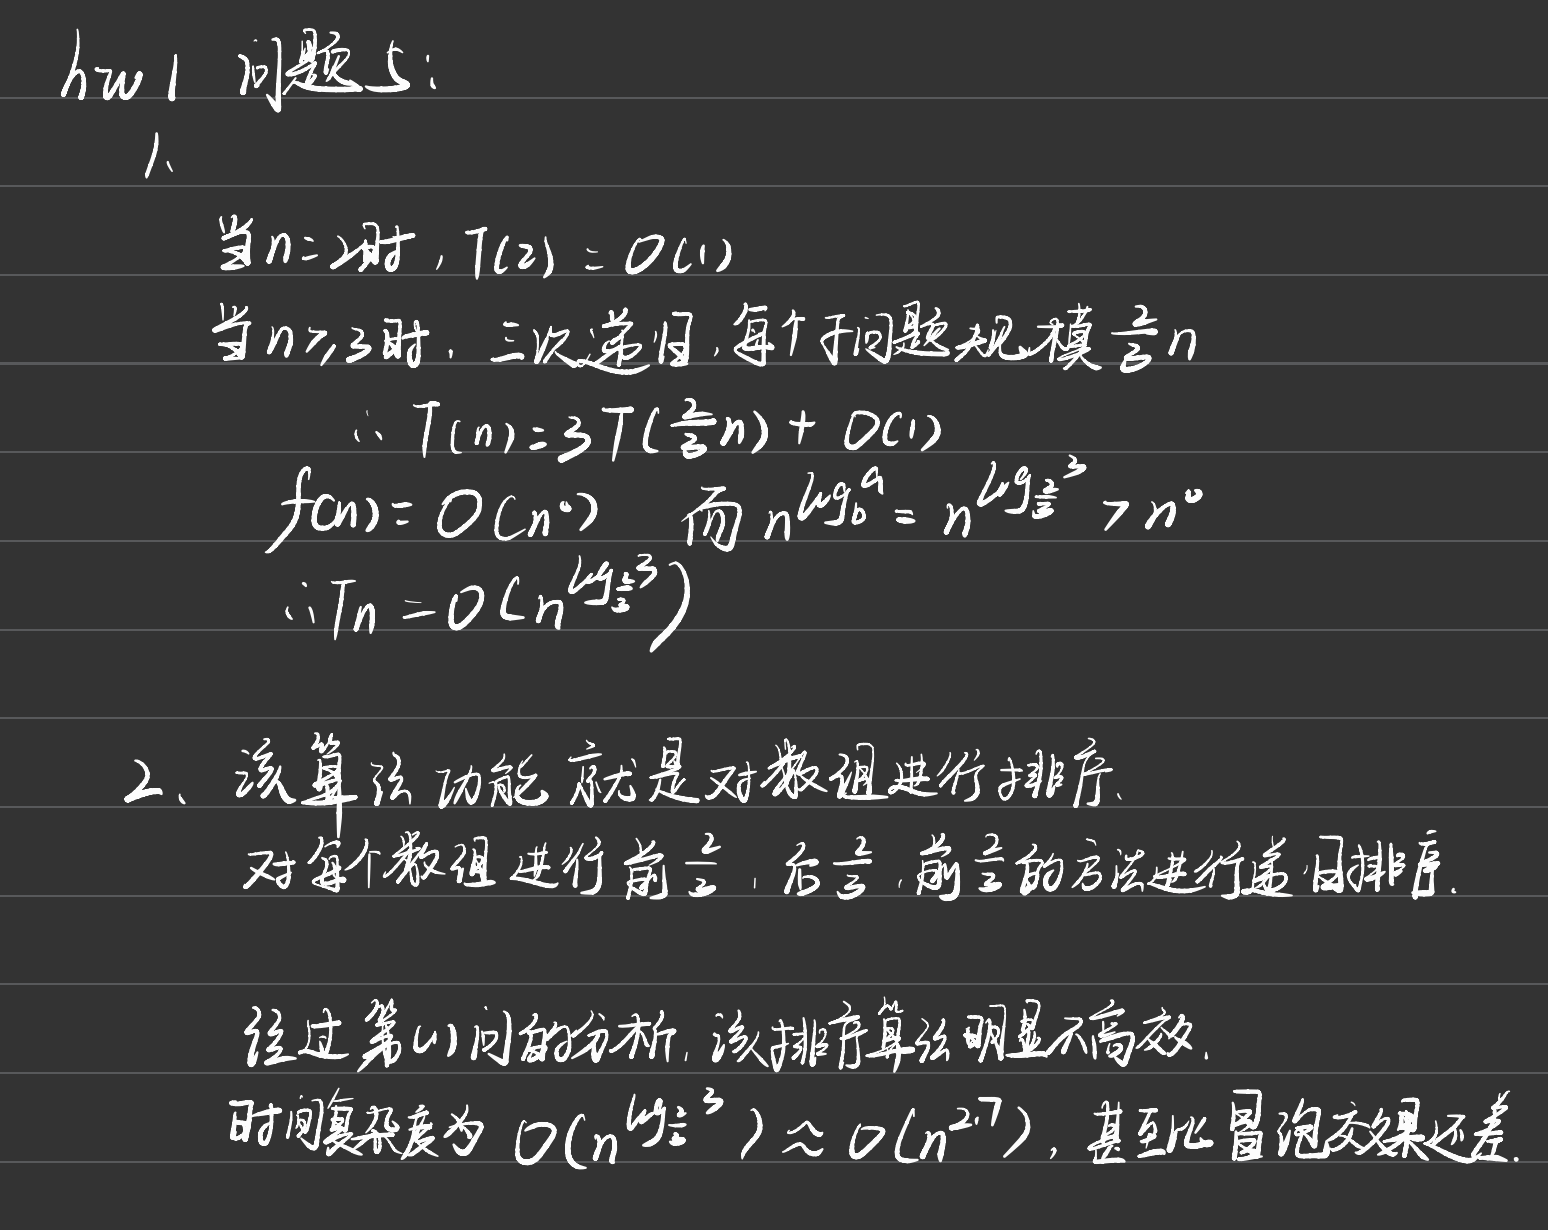 hw1 问题5:
1、
当n=2时, T(2) = O(1)
当n≥3时, 三次递归, 每个子问题规模 2/3 n
∴ T(n) = 3T(2/3 n) + O(1)
f(n) = O(n^0) 而 n^{log_b a} = n^{log_{3/2} 3} > n^0
∴ Tn = O(n^{log_{3/2} 3})
2、该算法功能就是对数组进行排序.
对每个数组进行前 2/3, 后 2/3, 前 2/3 的方法进行递归排序.
经过第(1)问的分析, 该排序算法明显不高效.
时间复杂度为 O(n^{log_{3/2} 3}) ≈ O(n^{2.7}), 甚至比冒泡效果还差.